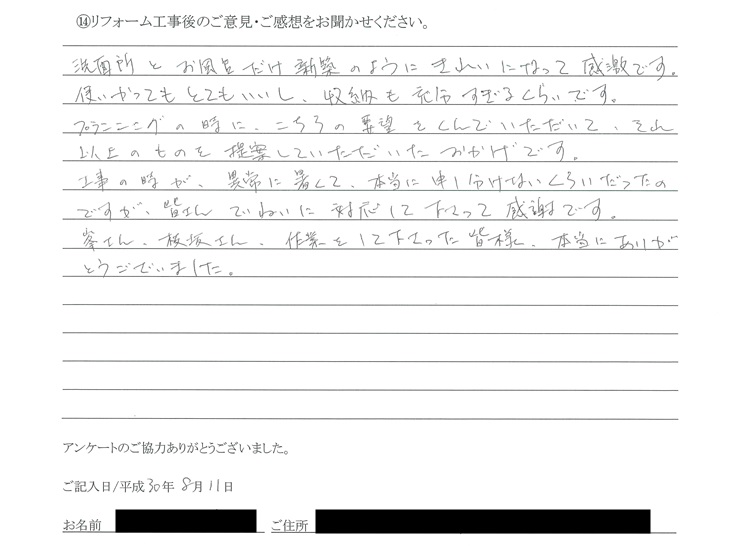 ⑭リフォーム工事後のご意見・ご感想をお聞かせください。
洗面所とお風呂だけ新築のようにきれいになって感激です。
使いかってもとてもいいし、収納も充分すぎるくらいです。
プランニングの時に、こちらの要望をくんでいただいて、それ
以上のものを提案していただいたおかげです。
工事の時が、異常に暑くて、本当に申し分けないくらいだったの
ですが、皆さんていねいに対応して下さって感謝です。
峯さん、板坂さん、作業をして下さった皆様、本当にありが
とうございました。
アンケートのご協力ありがとうございました。
ご記入日/平成30年 8月11日
お名前 ご住所